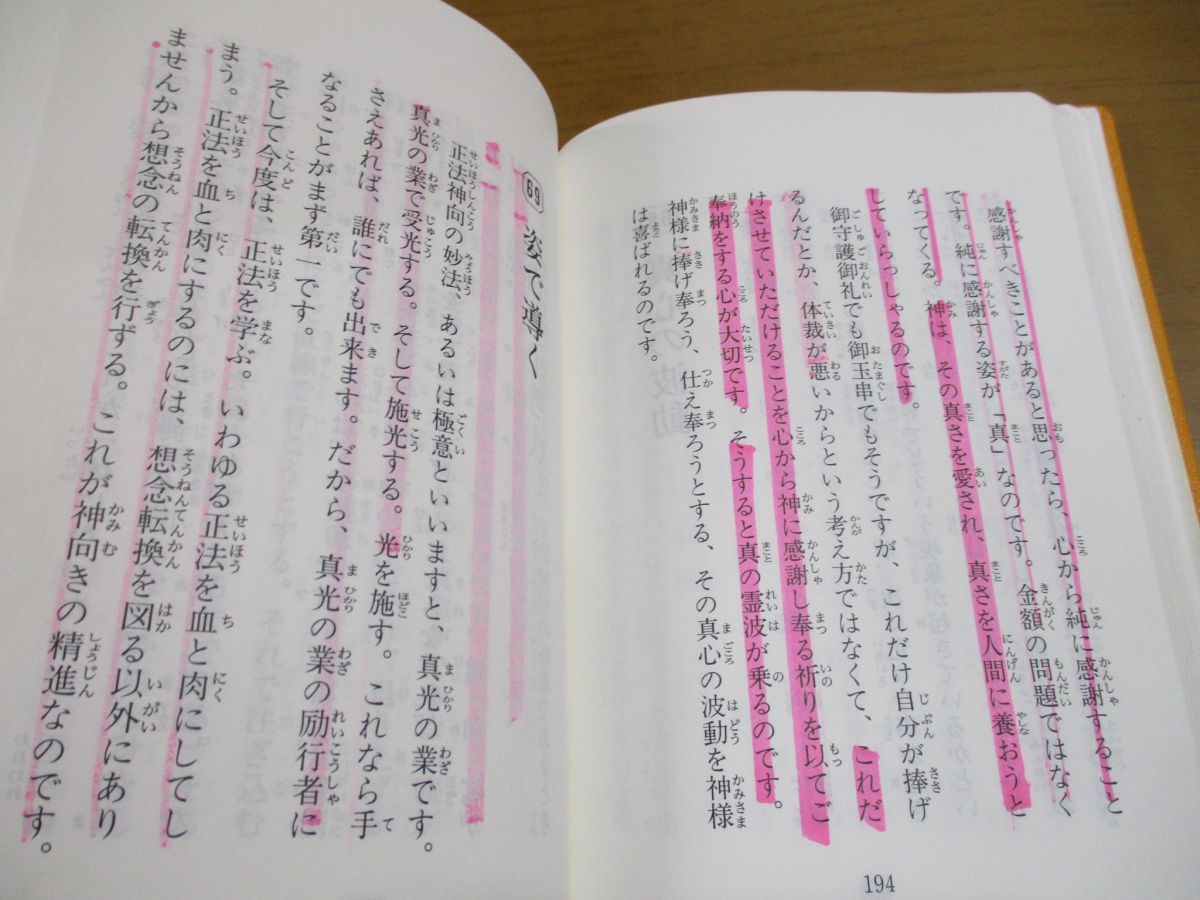 感謝すべきことがあると思ったら、心から純に感謝すること
です。純に感謝する姿が「真」なのです。金額の問題ではなく
なってくる。神は、その真さを愛され、真さを人間に養おうと
していらっしゃるのです。
御守護御礼でも御玉串でもそうですが、これだけ自分が捧げ
るんだとか、体裁が悪いからという考え方ではなくて、これだ
けさせていただけることを心から神に感謝し奉る祈りを以てご
奉納をする心が大切です。そうすると真の霊波が乗るのです。
神様に捧げ奉ろう、仕え奉ろうとする、その真心の波動を神様
は喜ばれるのです。
194
69 姿で導く
正法神向の妙法、あるいは極意といいますと、真光の業です。
真光の業で受光する。そして施光する。光を施す。これなら手
さえあれば、誰にでも出来ます。だから、真光の業の励行者に
なることがまず第一です。
そして今度は、正法を学ぶ。いわゆる正法を血と肉にしてし
まう。正法を血と肉にするのには、想念転換を図る以外にあり
ませんから想念の転換を行ずる。これが神向きの精進なのです。